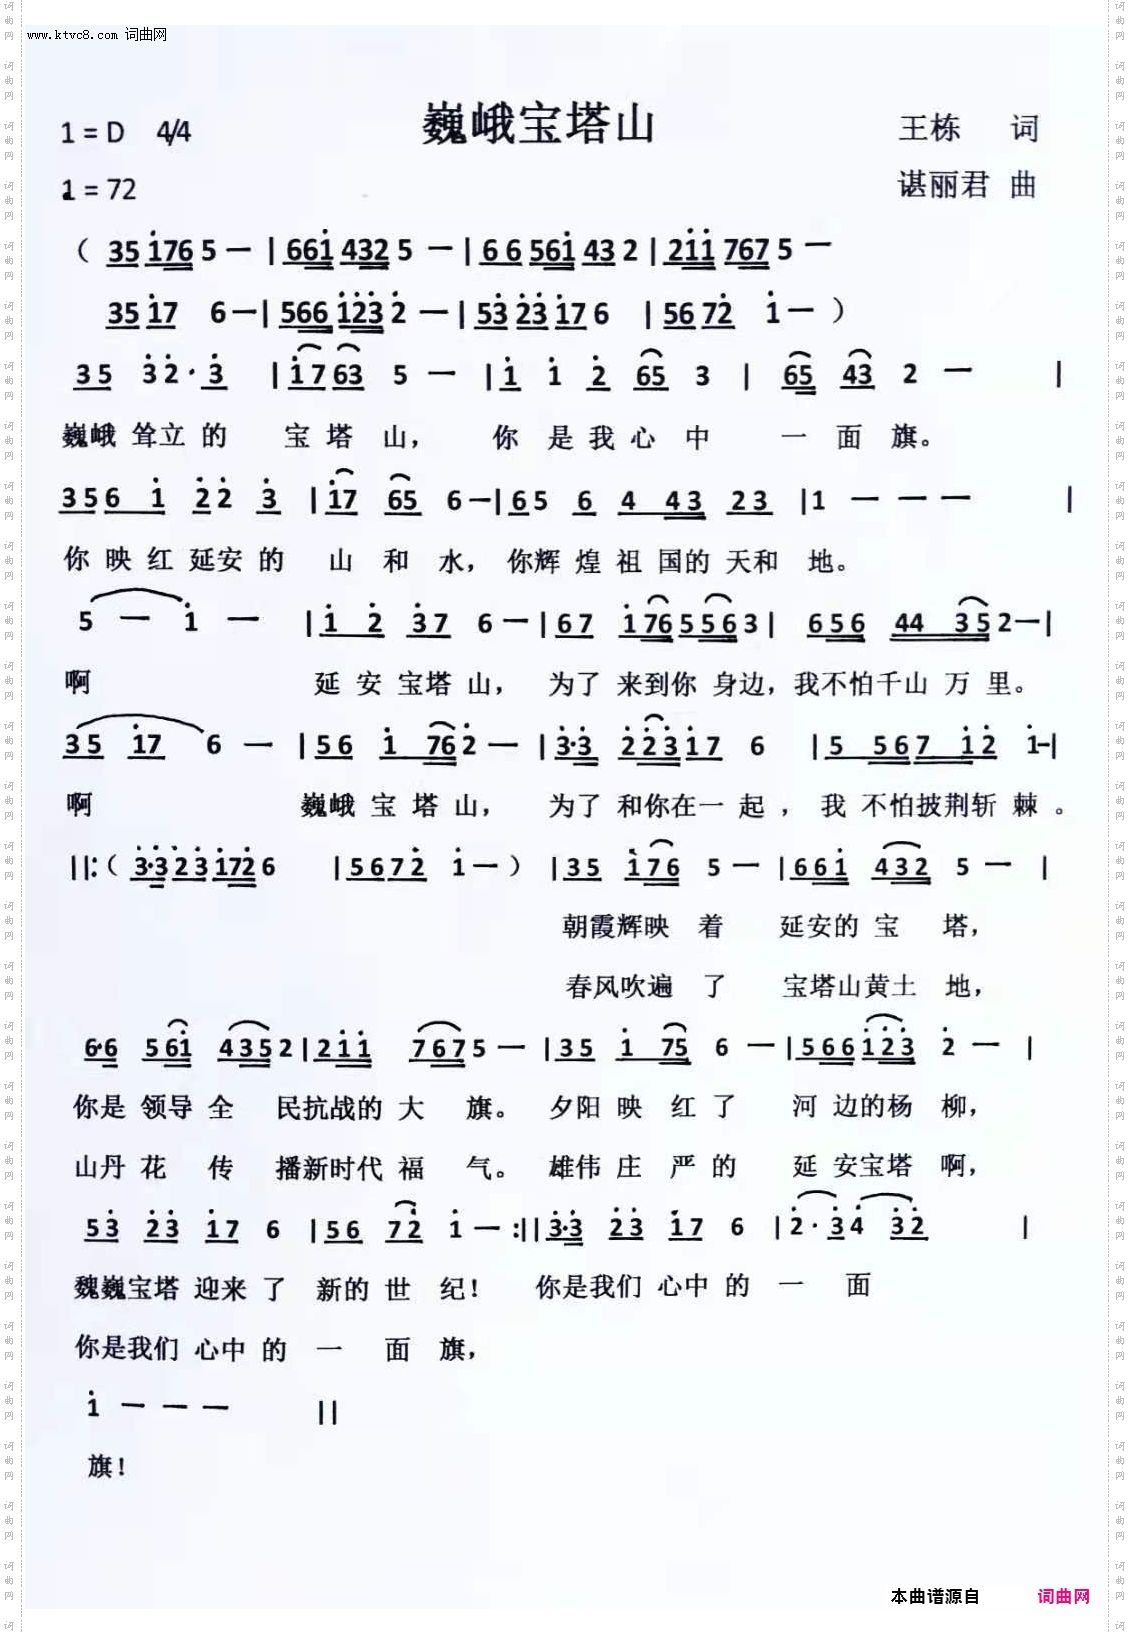 www.ktvc8.com 词曲网
巍峨宝塔山
1 = D 4/4
王栋 词
1 = 72
谌丽君 曲
( 35 176 5 — | 661 432 5 — | 66 561 43 2 | 211 767 5 —
35 17 6 — | 566 123 2 — | 53 23 17 6 | 56 72 1 — )
35 32· 3 | 17 63 5 — | 1 1 2 65 3 | 65 43 2 — |
巍峨 耸立 的 宝 塔 山， 你 是 我 心 中 一 面 旗。
356 1 22 3 | 17 65 6 — | 65 6 4 43 23 | 1 — — — |
你 映 红 延安 的 山 和 水， 你辉 煌 祖 国的 天和 地。
5 — 1 — | 1 2 37 6 — | 67 176 556 3 | 656 44 35 2 — |
啊 延 安 宝塔 山， 为了 来到你 身边，我不怕千山 万 里。
35 17 6 — | 56 1 762 — | 3·3 22317 6 | 5 567 12 1 — |
啊 巍峨 宝 塔 山， 为了 和你在一 起 ， 我 不怕披荆斩 棘 。
||:( 3·323 172 6 | 5672 1 — ) | 35 176 5 — | 661 432 5 — |
朝霞辉映 着 延安的 宝 塔，
春风吹遍 了 宝塔山黄土 地，
6·6 561 435 2 | 211 767 5 — | 35 1 75 6 — | 566123 2 — |
你是 领导 全 民抗战的 大 旗。 夕阳 映 红 了 河 边的杨 柳，
山丹 花 传 播新时代 福 气。 雄伟 庄 严 的 延 安宝塔 啊，
53 23 17 6 | 56 72 1 — :|| 3·3 23 17 6 | 2·34 32 |
魏巍宝塔 迎来 了 新的 世 纪！ 你是我们 心中 的 一 面
你是我们 心中 的 一 面 旗，
1 — — — ||
旗！
本曲谱源自 词曲网